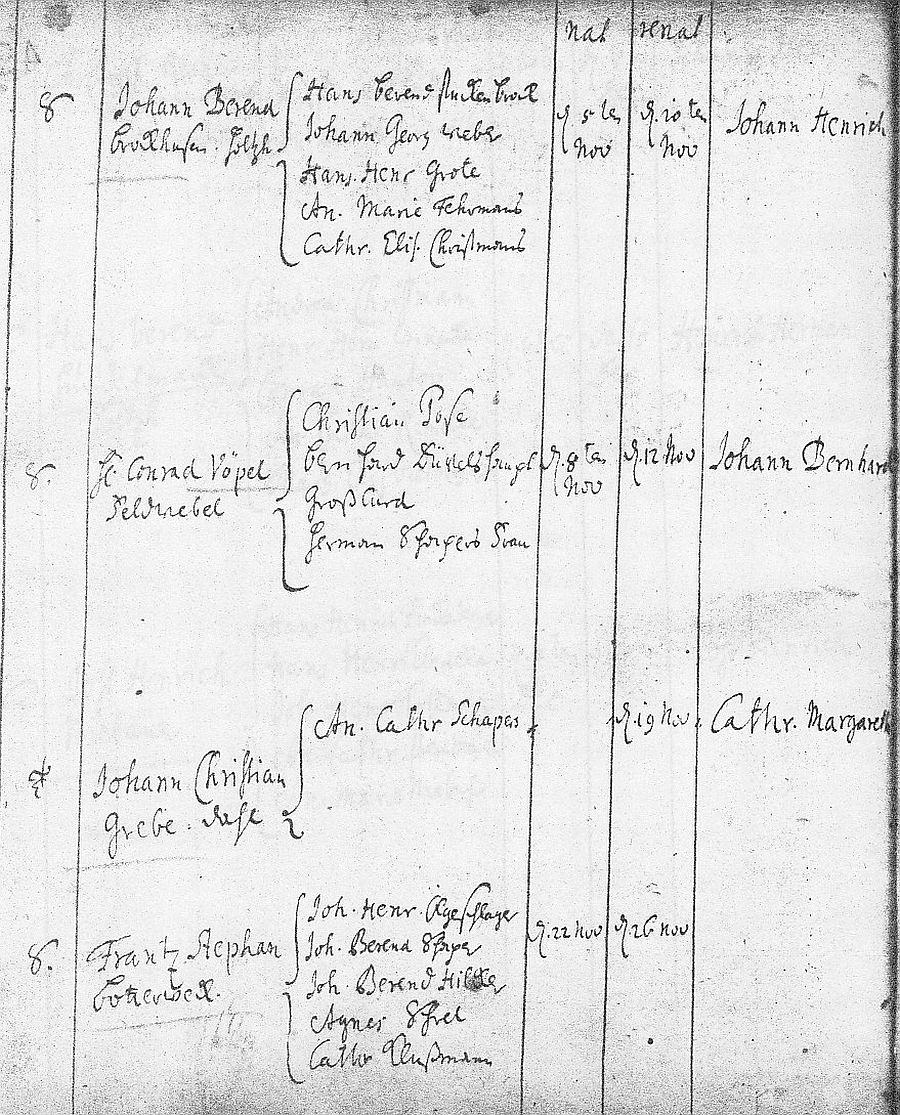 nat renat
Johann Berend
Brockhusen. Holtzh.
Hans Berend
Johann Georg Weber
Hans. Henr Grote
An. Marie Fehrmans
Cathr. Elis. Christmans
d. 5ten
Nov
d. 10ten
Nov
Johann Henrich
H. Conrad Vöpel
Feldwebel
Christian Pose
Großcurd
Herman Schapers Frau
d. 8ten
Nov
d. 12 Nov
Johann Bernhard
Johann Christian
Grebe.
An. Cathr Schapers
d. 19 Nov.
Cathr. Margareth
Frantz Stephan
Joh. Henr.
Joh. Berend Schaper
Joh. Berend
Agnes
Cathr Klusmann
d. 22 Nov
d. 26 Nov